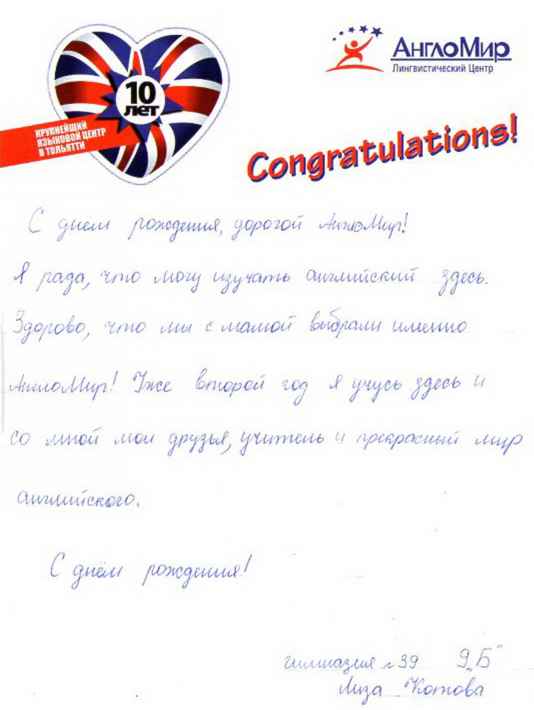 АнглоМир
Лингвистический Центр
10
лет
КРУПНЕЙШИЙ
ЯЗЫКОВОЙ ЦЕНТР
В ТОЛЬЯТТИ
Congratulations!
С днем рождения, дорогой АнглоМир!
Я рада, что могу изучать английский здесь.
Здорово, что мы с мамой выбрали именно
АнглоМир! Уже второй год я учусь здесь и
со мной мои друзья, учитель и прекрасный мир
английского.
С днём рождения!
гимназия №39 9„Б"
Лиза Котова